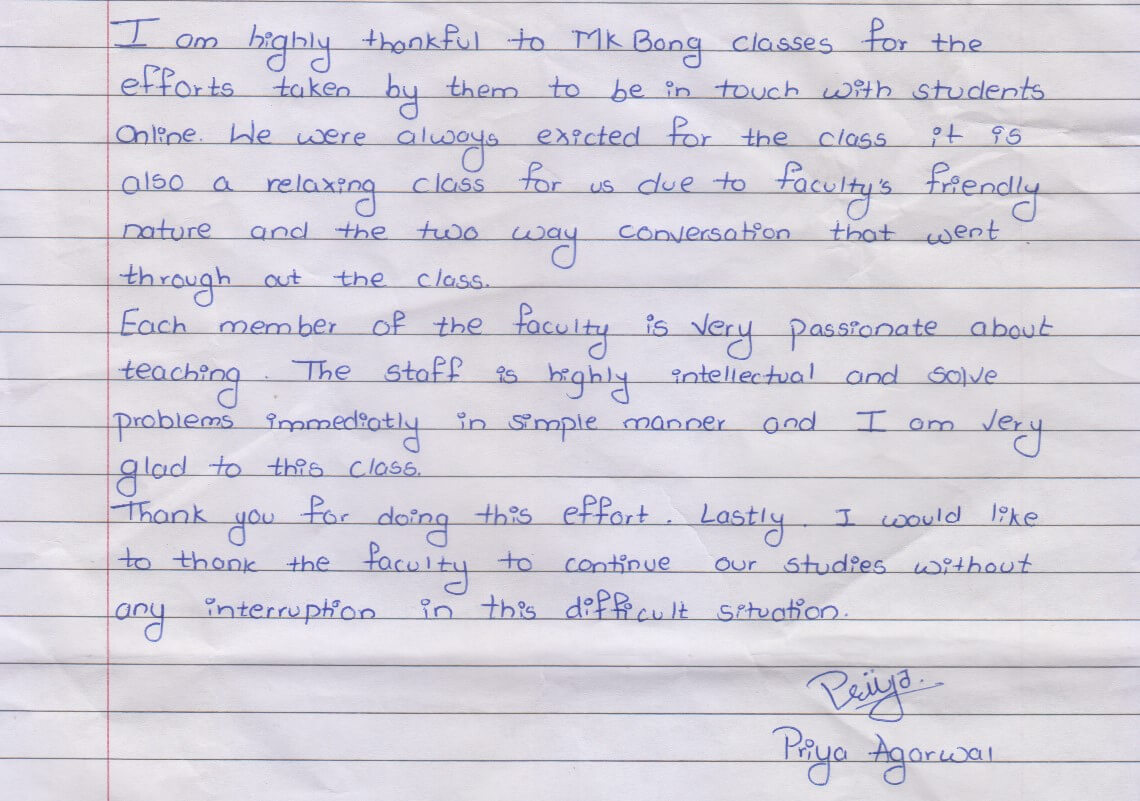 I am highly thankful to Mk Bang classes for the
efforts taken by them to be in touch with students
online. We were always exicted for the class it is
also a relaxing class for us due to faculty's friendly
nature and the two way conversation that went
through out the class.
Each member of the faculty is very passionate about
teaching. The staff is highly intellectual and solve
problems immediatly in simple manner and I am very
glad to this class.
Thank you for doing this effort. Lastly. I would like
to thank the faculty to continue our studies without
any interruption in this difficult situation.
Priya.
Priya Agarwal